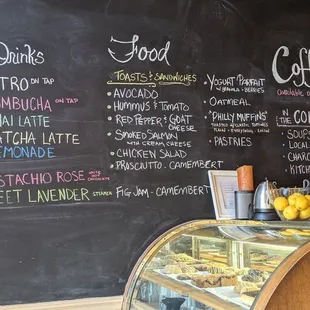 Drinks
TRO ON TAP
OMBUCHA ON TAP
HAI LATTE
ATCHA LATTE
EMONADE
STACHIO ROSE WITH WHITE CHOCOLATE
EET LAVENDER
Food
TOASTS & SANDWICHES
• AVOCADO
• HUMMUS & TOMATO
• RED PEPPER & GOAT CHEESE
• SMOKED SALMON WITH CREAM CHEESE
• CHICKEN SALAD
• PRASCIUTTO - CAMEMBERT
FIG JAM - CAMEMBERT
• YOGURT PARFAIT
W/ GRANOLA + BERRIES
• OATMEAL
• "PHILLY MUFFINS"
• PASTRIES
Co
AVAILABLE
IN THE CO
SOUPS
LOCAL
CHARC
KITCH